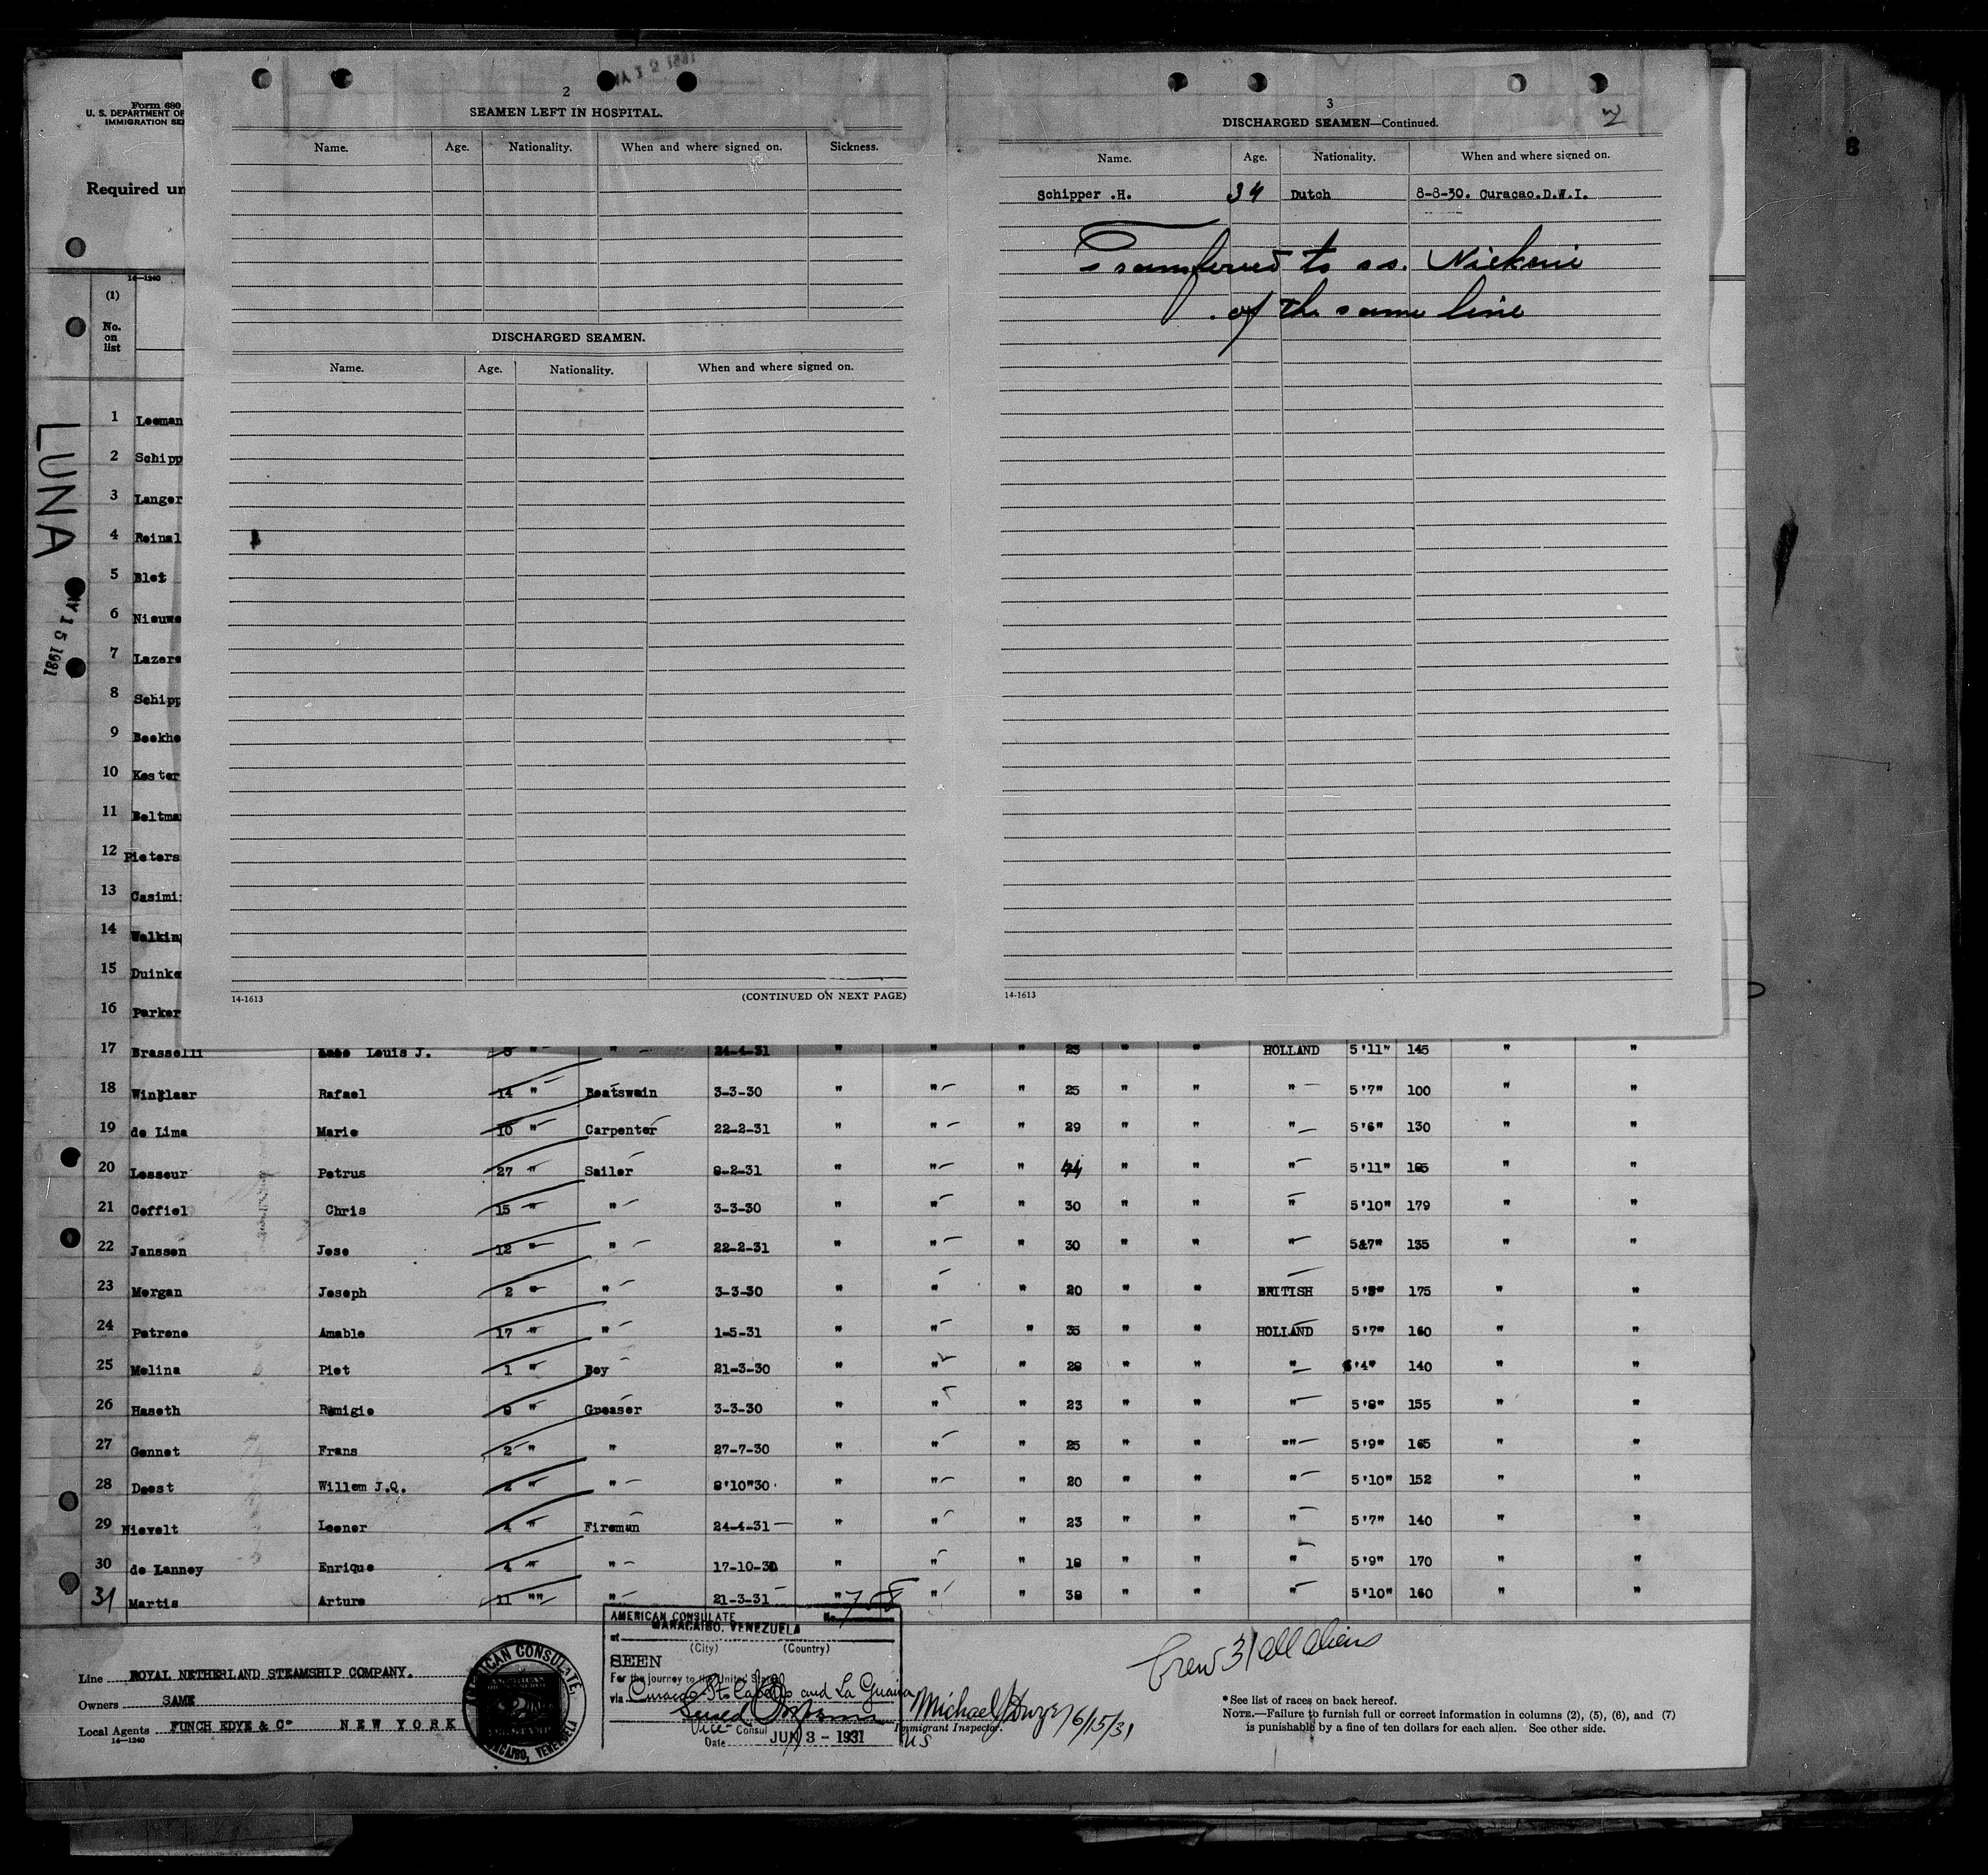 Form 680
U. S. DEPARTMENT OF
IMMIGRATION SE
Required un
14-1240
(1)
No.
on
list
LUNA
15 1931
2
SEAMEN LEFT IN HOSPITAL.
Name. Age. Nationality. When and where signed on. Sickness.
DISCHARGED SEAMEN.
Name. Age. Nationality. When and where signed on.
14-1613 (CONTINUED ON NEXT PAGE)
3
2
DISCHARGED SEAMEN—Continued.
Name. Age. Nationality. When and where signed on.
Schipper .H. 34 Dutch 8-8-30. Curacao.D.W.I.
Transferred to s s. Nickerie
of the same line
14-1613
1 Leeman
2 Schipp
3 Langer
4 Reinal
5 Blet
6 Nieuwe
7 Lazere
8 Schipp
9 Beekhe
10 Kester
11 Beltma
12 Pieters
13 Casimi
14 Walkin
15 Duinke
16 Parker
17 Brasselli Louis J. 5 " " 24-4-31 " " " 25 " " HOLLAND 5'11" 145 " "
18 Winklaar Rafael 14 " Boatswain 3-3-30 " " " 25 " " " 5'7" 100 " "
19 de Lima Marie 10 " Carpenter 22-2-31 " " " 29 " " " 5'6" 130 " "
20 Lesseur Petrus 27 " Sailer 8-2-31 " " " 44 " " " 5'11" 185 " "
21 Coffiel Chris 15 " " 3-3-30 " " " 30 " " " 5'10" 179 " "
22 Janssen Jose 12 " " 22-2-31 " " " 30 " " " 5&7" 135 " "
23 Morgan Joseph 2 " " 3-3-30 " " " 20 " " BRITISH 175 " "
24 Petrone Amable 17 " " 1-5-31 " " " 35 " " HOLLAND 5'7" 160 " "
25 Melina Piet 1 " Boy 21-3-30 " " " 28 " " " '4" 140 " "
26 Haseth Remigie " Greaser 3-3-30 " " " 23 " " " 5'8" 155 " "
27 Gennet Frans 2 " " 27-7-30 " " " 25 " " "" 5'9" 165 " "
28 Deest Willem J.Q. 2 " " 8'10"30 " " " 20 " " " 5'10" 152 " "
29 Nievelt Leener 4 " Fireman 24-4-31 " " " 23 " " " 5'7" 140 " "
30 de Lanney Enrique 4 " " 17-10-30 " " " 18 " " " 5'9" 170 " "
31 Martis Arture 11 "" " 21-3-31 " " " 38 " " " 5'10" 160 " "
Line ROYAL NETHERLAND STEAMSHIP COMPANY.
Owners SAME
Local Agents FUNCH EDYE & Co NEW YORK
14-1240
AMERICAN CONSULATE
MARACAIBO, VENEZUELA
AMERICAN CONSULATE No. 758
at MARACAIBO, VENEZUELA
(City) (Country)
SEEN
For the journey to the United States
via Curacao Pto Cabello and La Guaira
Vice Consul
Date JUN 3 - 1931
Michael 6/15/31
Immigrant Inspector.
US
Crew 31 all aliens
*See list of races on back hereof.
NOTE.—Failure to furnish full or correct information in columns (2), (5), (6), and (7)
is punishable by a fine of ten dollars for each alien. See other side.